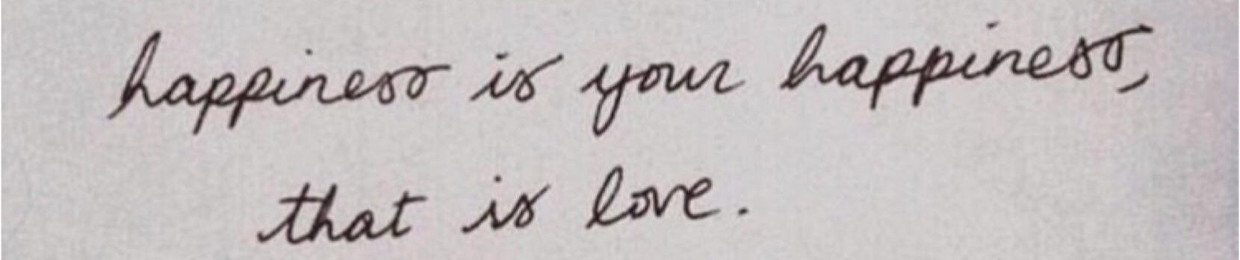 happiness is your happiness,
that is love.